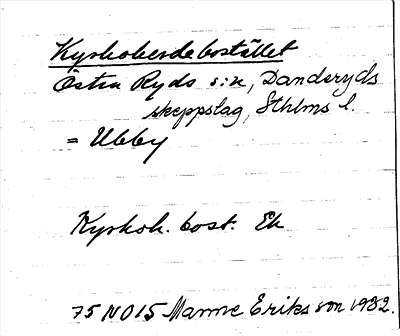 Kyrkoherdebostället
Östra Ryds s:n, Danderyds
skeppslag, Sthlms l.
= Ubby
Kyrkoh. bost. Ek
75 NO 15 Manne Eriksson 1932.